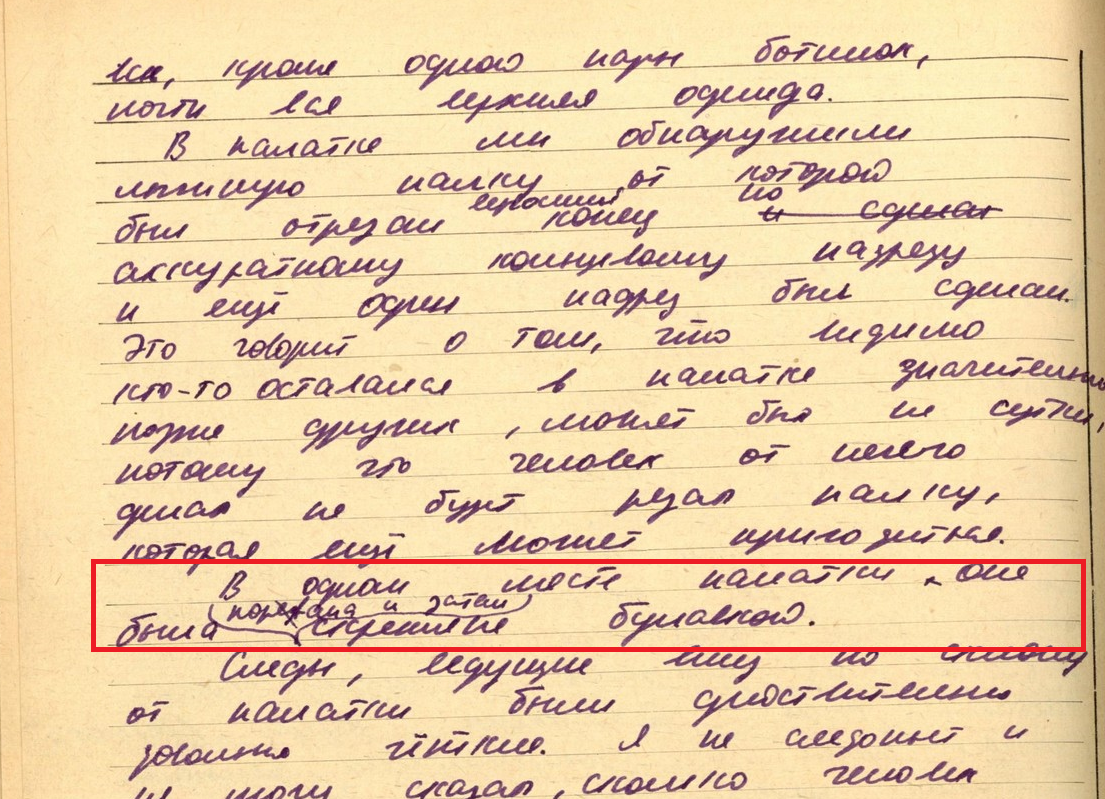 кроме одной пары ботинок,
почти вся верхняя одежда.
В палатке мы обнаружили
лыжную палку, от которой
верхний по
был отрезан конец и сделан
аккуратному кольцевому надрезу
и ещё один надрез был сделан.
Это говорит о том, что видимо
кто-то оставался в палатке значительно
позже других, может был не сутки,
потому что человек от нечего
делать не будет резать палку,
которая ещё может пригодиться.
В одном месте палатки она
порезана и затем
была скреплена булавкой.
Следы, ведущие вниз по склону
от палатки были действительно
довольно чёткие. Я не следопыт и
не могу сказать, сколько человек